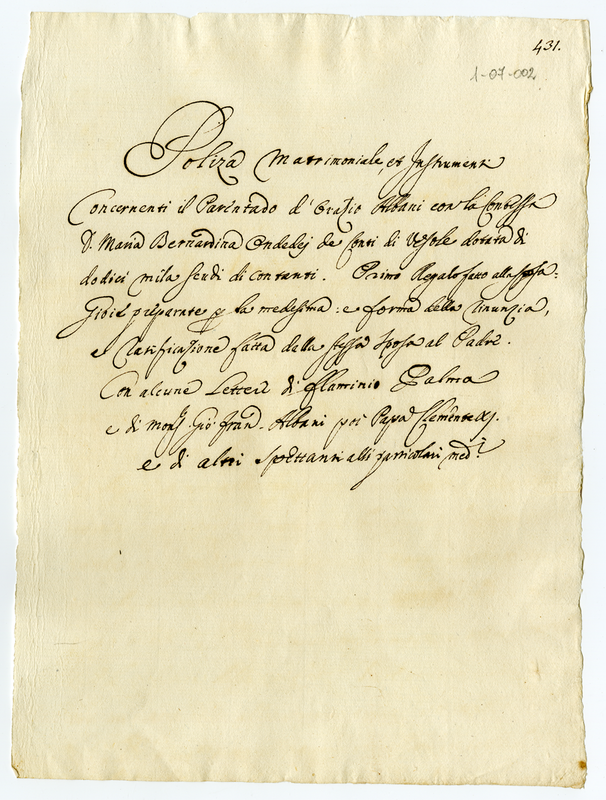 431.
1-07-002
Poliza Matrimoniale, et Instrumenti
Concernenti il Parentado d' Orazio Albani con la Contessa
D. Maria Bernardina Ondedej de Conti di Vesole dotata di
dodici mila scudi di contanti. Primo Regalo fatto alla sposa:
Gioie preparate p la medesima: e forma della rinunzia,
e Ratificazione fatta dalla stessa sposa al Padre.
Con alcune Lettere di Flaminio Palma
e di Monsr Gio: Fran. Albani poi Papa Clemente XI.
e di altri Spettanti alli particolari medi.